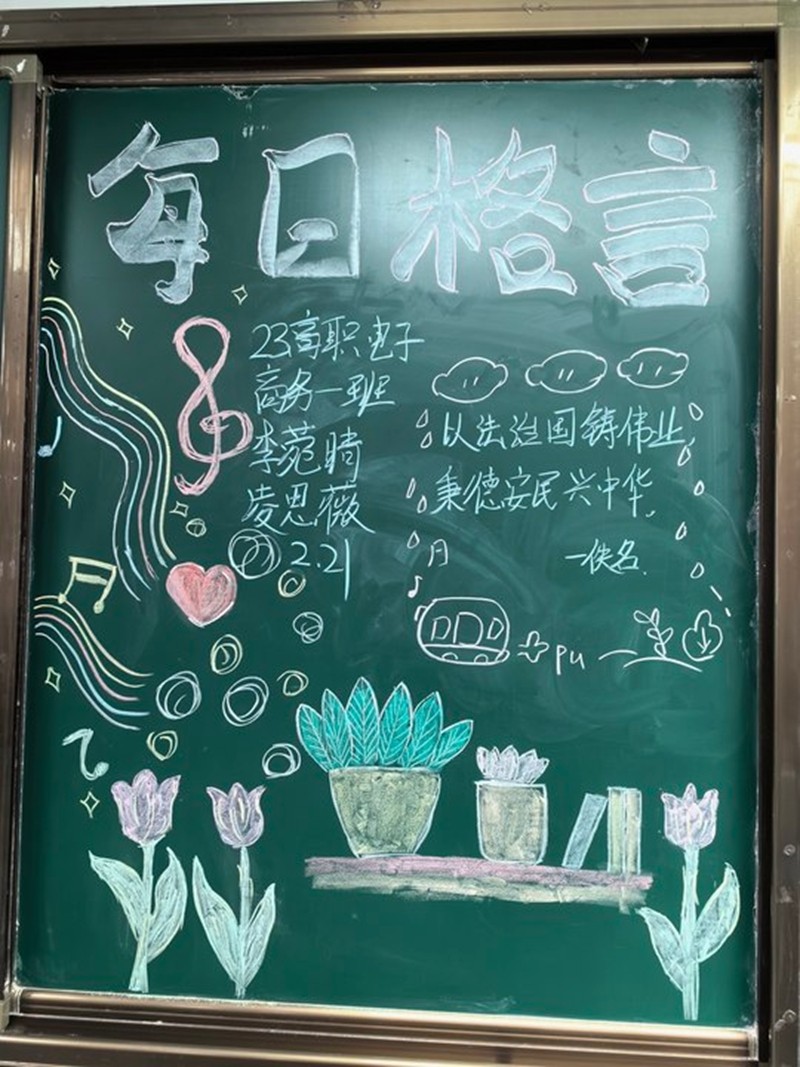 每日格言
23高职电子
商务一班
李菀晴
凌思薇
2.21
以法治国铸伟业
秉德安民兴中华.
—佚名.
pu